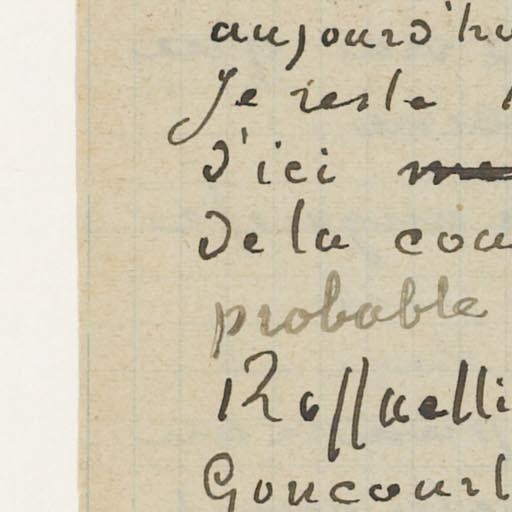 aujourd'hu
Je reste
d'ici
de la cou
probable
Raffaelli
Goncourt